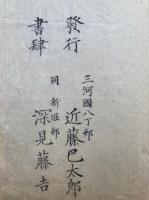 發行
書肆
三河國八丁村
近藤巴太郎
同 新堀村
深見藤吉